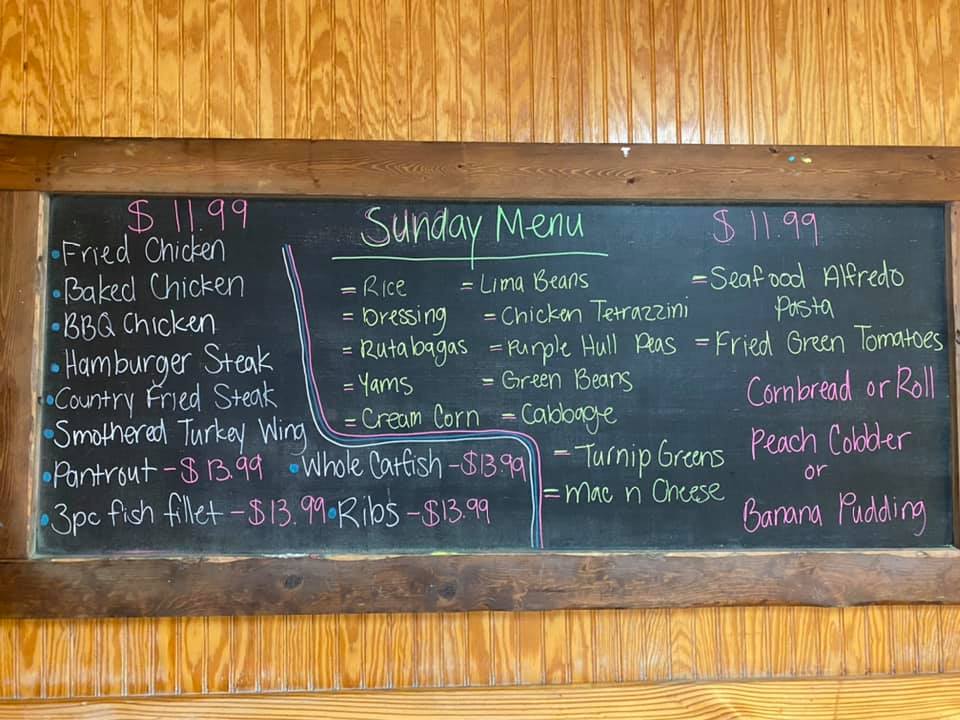 $ 11.99
• Fried Chicken
• Baked Chicken
• BBQ Chicken
• Hamburger Steak
• Country Fried Steak
• Smothered Turkey Wing
• Pantrout - $ 13.99 • Whole Catfish - $13.99
• 3pc fish fillet - $13.99 • Ribs - $13.99
Sunday Menu
= Rice = Lima Beans
= Dressing = Chicken Tetrazzini
= Rutabagas = Purple Hull Peas
= Yams = Green Beans
= Cream Corn = Cabbage
= Turnip Greens
= Mac n Cheese
$ 11.99
= Seafood Alfredo
Pasta
= Fried Green Tomatoes
Cornbread or Roll
Peach Cobbler
or
Banana Pudding